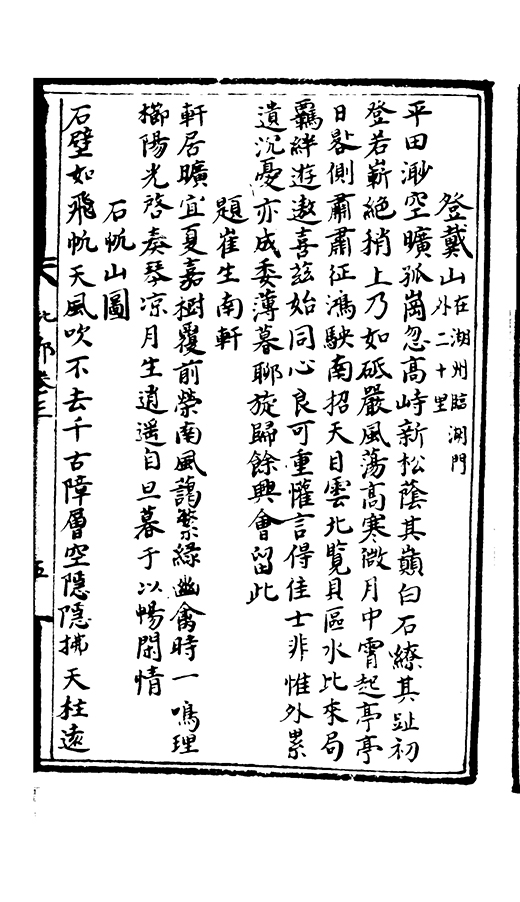 登戴山在湖州臨湖門外二十里
平田渺空曠孤崗忽高峙新松蔭其巔白石繚其趾初
登若嶄絕稍上乃如砥嚴風蕩高寒微月中霄起亭亭
日晷側肅肅征鴻駛南招天目雲北覽具區水比來局
羈絆遊遨喜茲始同心良可重懽言得佳士非惟外累
遺沉憂亦成委薄暮聊旋歸餘興會留此
題崔生南軒
軒居曠宜夏嘉樹覆前榮南風藹繁綠幽禽時一鳴理
櫛陽光啓奏琴凉月生逍遥自旦暮于以暢閑情
石帆山圖
石壁如飛帆天風吹不去千古障層空隱隱拂天柱遠
卷三
五